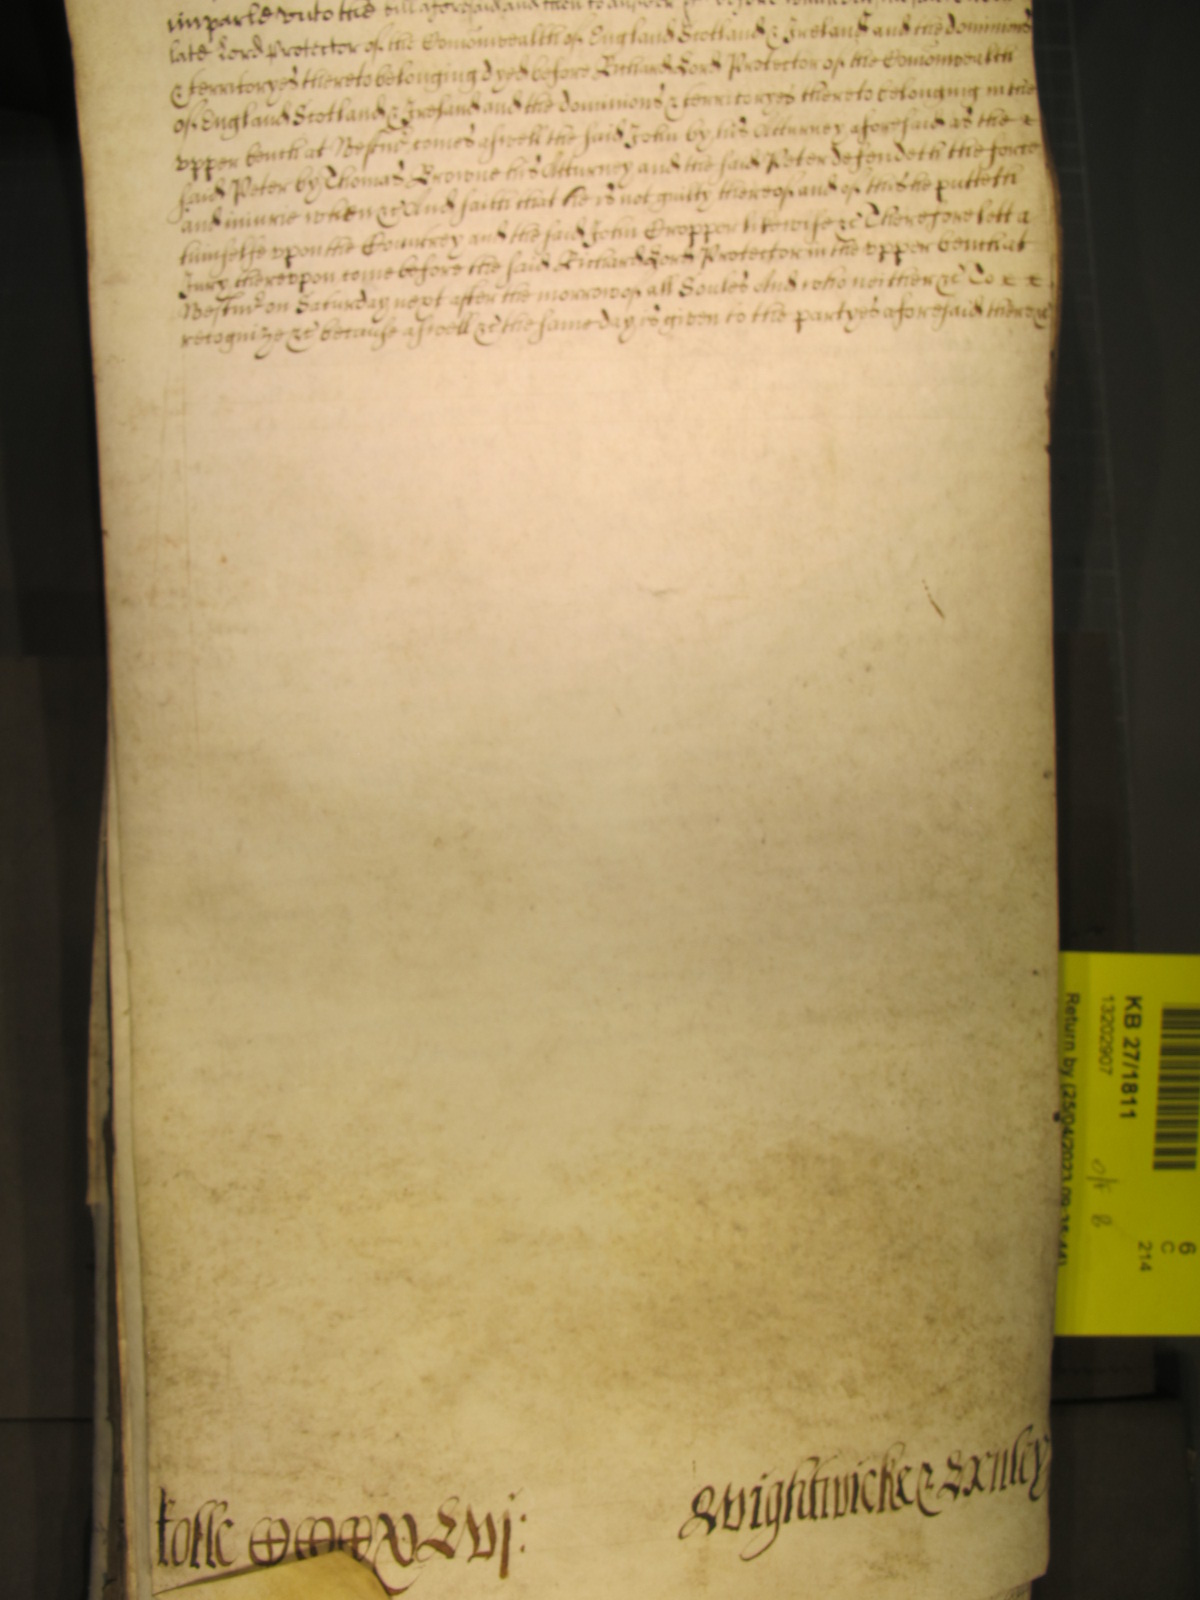 imparle unto the bill aforesaid and then to answer &c before
late Lord Protector of the Comonwealth of England Scotland & Ireland and the dominions
& territoryes thereto belonging dyed before Richard Lord Protector of the Comonwealth
of England Scotland & Ireland and the dominions & territoryes thereto belonging in the
upper bench at Westmr comes aswell the said John by his Atturney aforesaid as the
said Peter by Thomas Browne his Atturney and the said Peter defendeth the force
and iniurie when &c And saith that he is not guilty thereof and of this he putteth
himselfe upon the Countrey and the said John Cropper likewise &c Therefore lett a
Jury thereupon come before the said Richard Lord Protector in the upper bench at
Westmr on Saturday next after the morrow of all Soules And who neither &c To
recognize &c because aswell &c the same day is given to the partyes aforesaid there &c
Rolle
Wightwicke &
KB 27/1811
13202907
Return by (25/04/2023
6
C
214